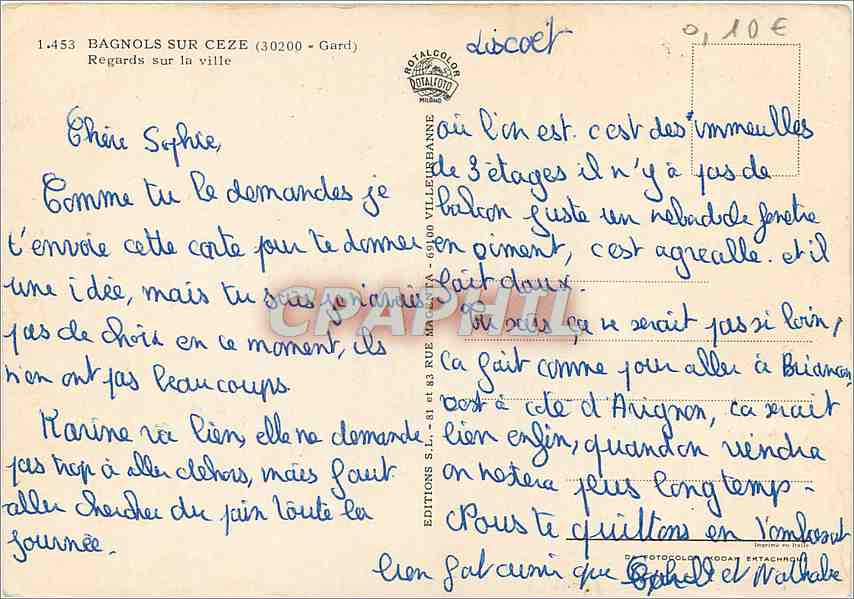 1.453 BAGNOLS SUR CEZE (30200 - Gard)
Regards sur la ville
ROTALCOLOR
ROTALFOTO
MILANO
0,10 €
EDITIONS S.L. - 81 et 83 RUE MAGENTA - 69100 VILLEURBANNE
Liscoët
Chère Sophie,
Comme tu le demandes je
t'envoie cette carte pour te donner
une idée, mais tu sais je n'avais
pas de choix en ce moment, ils
n'en ont pas beaucoups.
Karine va bien, elle ne demande
pas trop à aller dehors, mais faut
aller chercher du pain toute la
journée.
où l'on est. c'est des immeubles
de 3 étages il n'y à pas de
balcon juste un fenetre
en ciment, c'est agreable. et il
fait doux.
Tu sais ça ne serait pas si loin,
ca fait comme pour aller à Briancon,
c'est à coté d'Avignon, ca serait
bien enfin, quand on viendra
on restera plus longtemp -
Nous te quittons en t'embrassant
bien fort ainsi que et Nathalie
Imprimé en Italie
DA FOTOCOLOR KODAK EKTACHROME
CPAPHIL